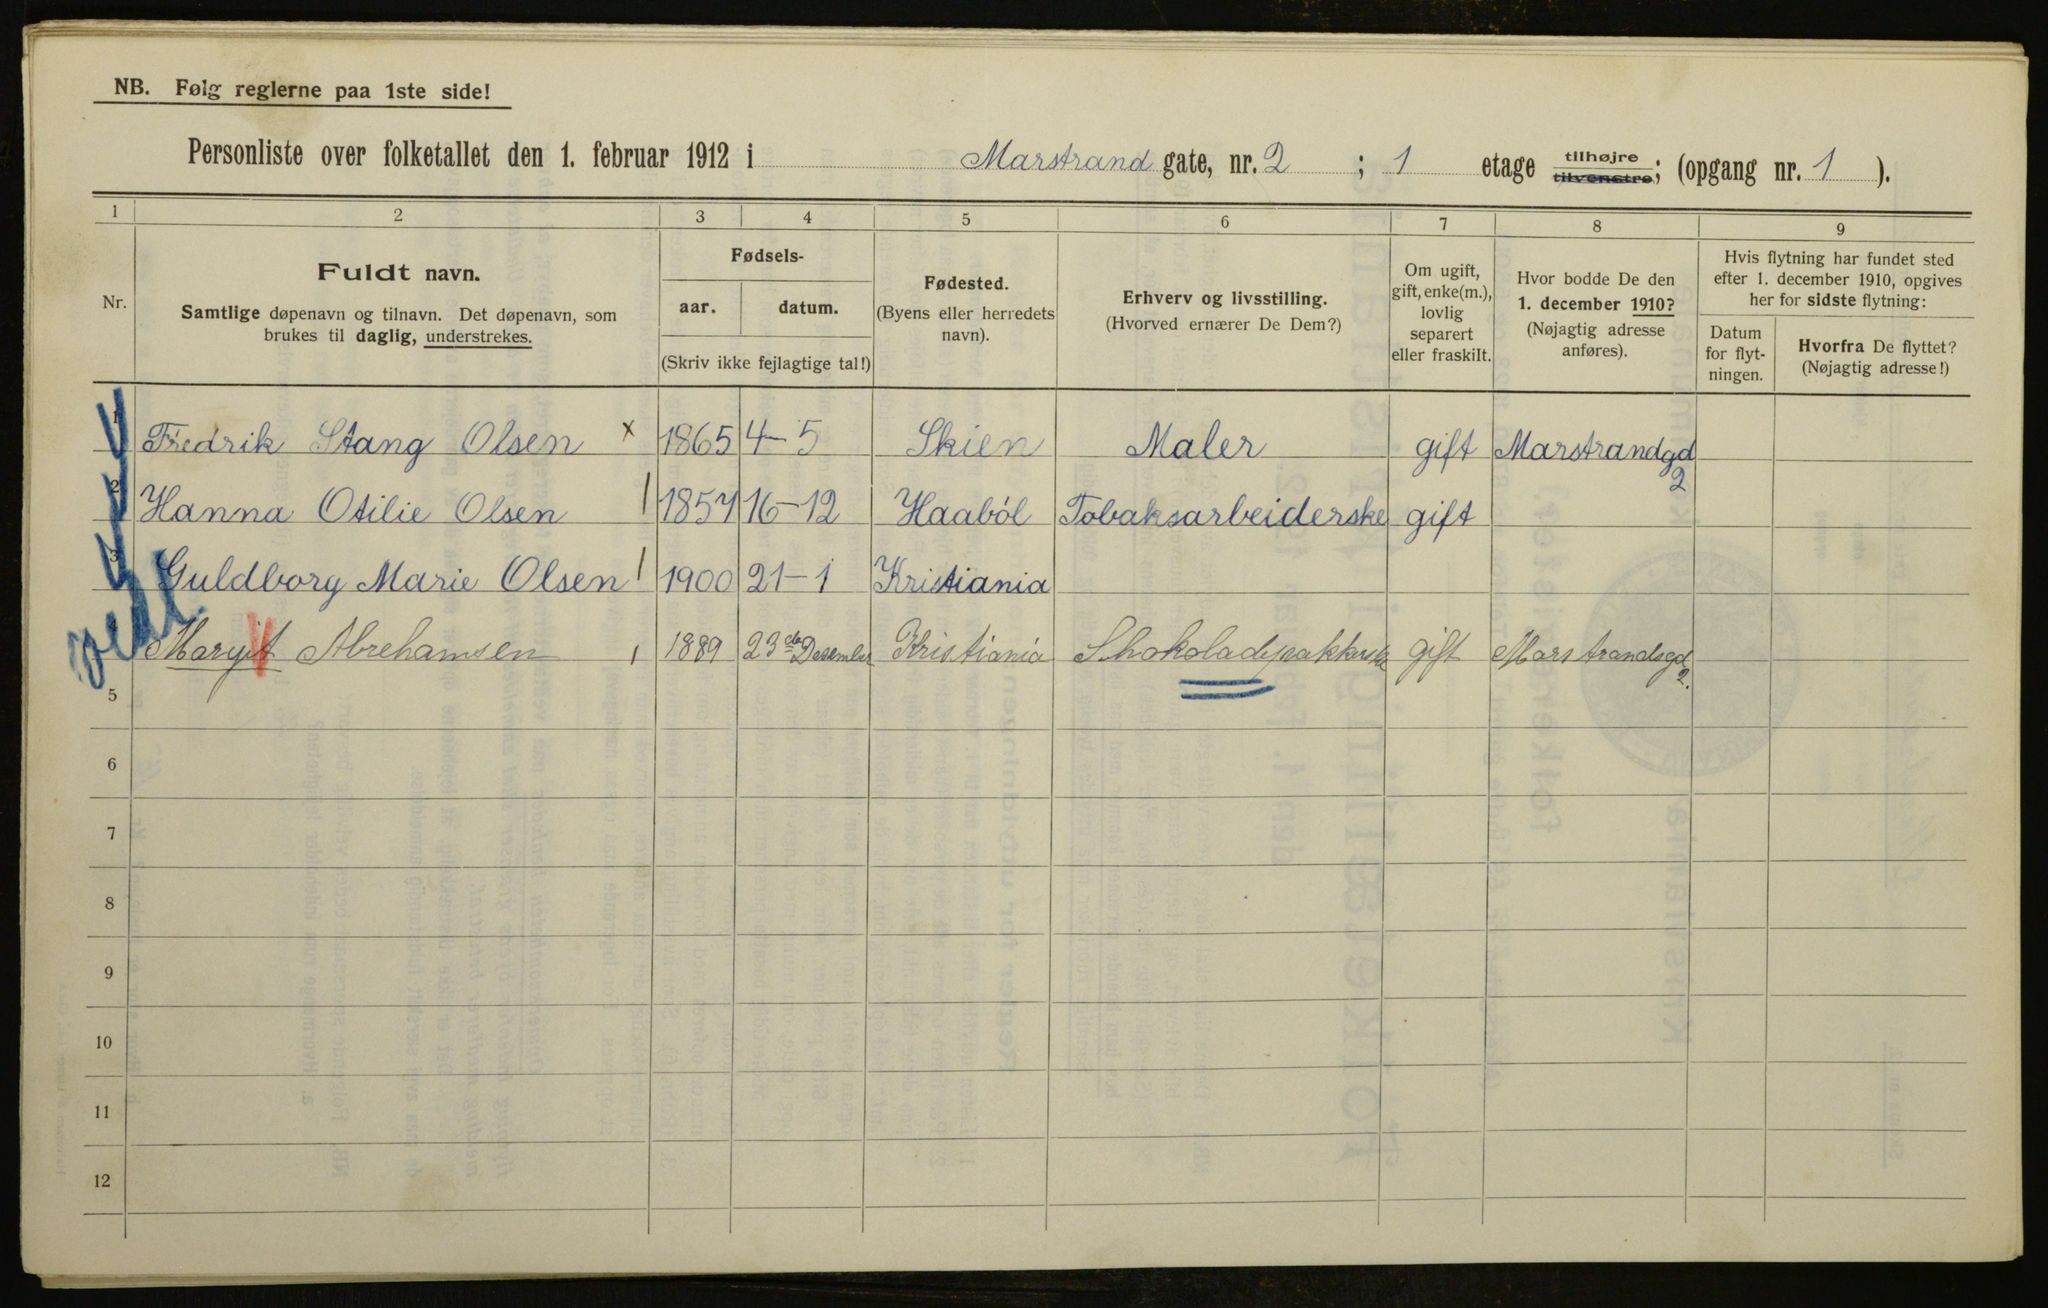 NB. Følg reglerne paa 1ste side!
Personliste over folketallet den 1. februar 1912 i Marstrand gate, nr. 2 ; 1 etage tilhøjre tilvenstre; (opgang nr. 1 ).
1 2 3 4 5 6 7 8 9
Nr.
Fuldt navn.
Samtlige døpenavn og tilnavn. Det døpenavn, som
brukes til daglig, understrekes.
Fødsels-
aar. datum.
(Skriv ikke fejlagtige tal!)
Fødested.
(Byens eller herredets
navn).
Erhverv og livsstilling.
(Hvorved ernærer De Dem?)
Om ugift,
gift, enke(m.),
lovlig
separert
eller fraskilt.
Hvor bodde De den
1. december 1910?
(Nøjagtig adresse
anføres).
Hvis flytning har fundet sted
efter 1. december 1910, opgives
her for sidste flytning:
Datum
for flyt-
ningen.
Hvorfra De flyttet?
(Nøjagtig adresse!)
1 Fredrik Stang Olsen x 1865 4-5 Skien Maler gift Marstrandgd 2
2 Hanna Otilie Olsen 1857 16-12 Haaböl Tobaksarbeiderske gift
3 Guldborg Marie Olsen 1900 21-1 Kristiania
4 Maryit Abrehamsen 1889 23de Desember Kristiania Schokoladepakkerske gift Marstrandsgd 2.
5
6
7
8
9
10
11
12